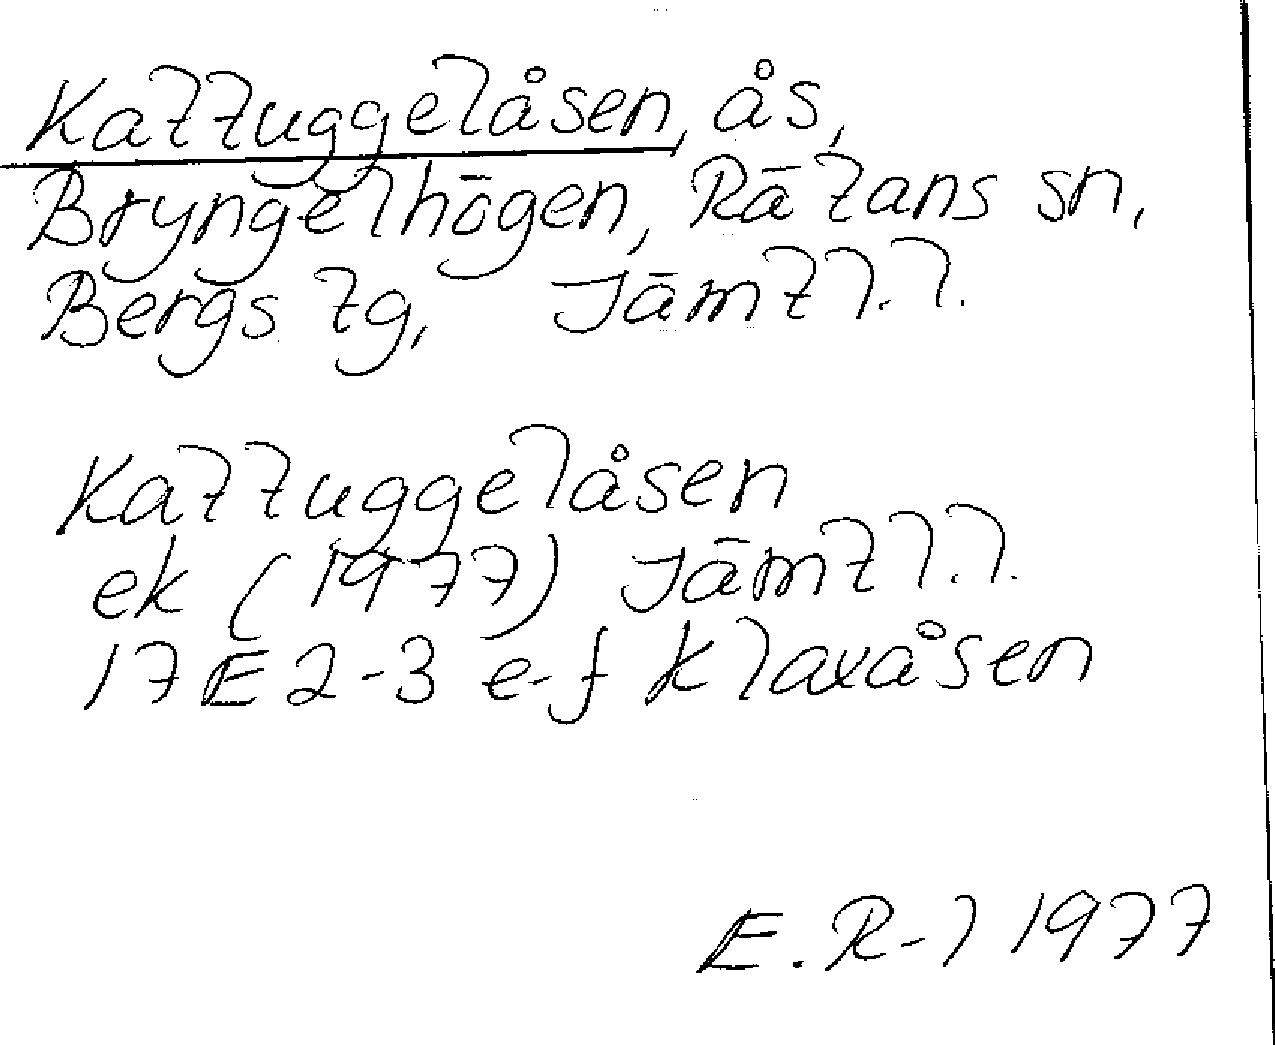 Kattuggelåsen, ås,
Bryngelhögen, Rätans sn,
Bergs tg, Jämtl.l.
Kattuggelåsen
ek (1977) Jämtl.l.
17E2-3 e-f Klaxåsen
E. R-l 1977